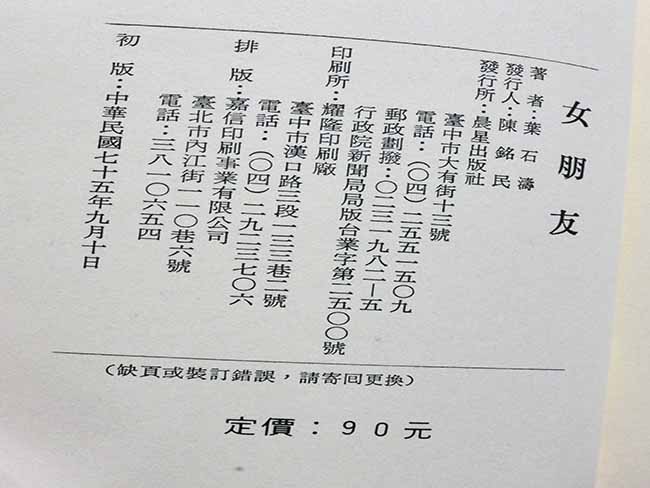 女朋友
著者：葉石濤
發行人：陳銘民
發行所：晨星出版社
臺中市大有街十三號
電話：（〇四）二五五一五〇九
郵政劃撥：〇二三一九八二—五
行政院新聞局局版台業字第二五〇〇號
印刷所：耀隆印刷廠
臺中市漢口路三段一三三巷二號
電話：（〇四）二九二三七〇六
排版：嘉信印刷事業有限公司
臺北市內江街一一〇巷六號
電話：三八一〇六五四
初版：中華民國七十五年九月十日
（缺頁或裝訂錯誤，請寄回更換）
定價：90元